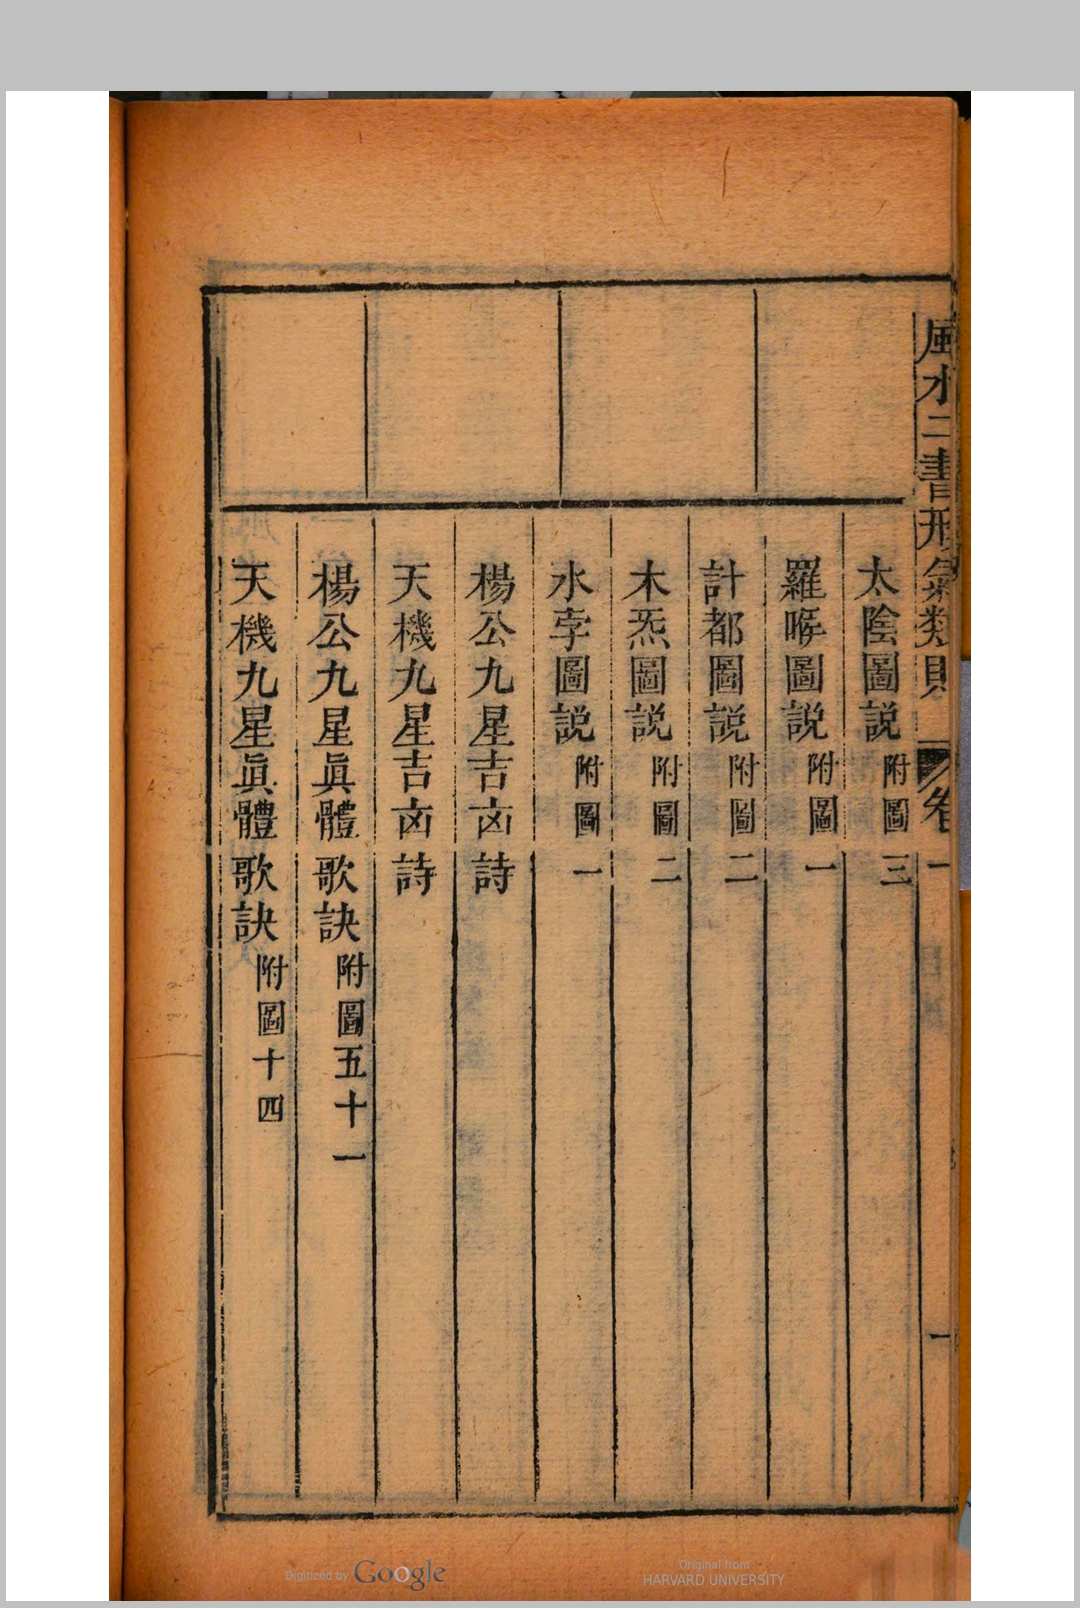 風水二書形氣類則 卷一 一
太陰圖説附圖三
羅㬋圖説附圖一
計都圖説附圖二
木炁圖説附圖二
水孛圖説附圖一
楊公九星吉凶詩
天機九星吉凶詩
楊公九星眞體歌訣附圖五十一
天機九星眞體歌訣附圖十四
Digitized by Google
Original from
HARVARD UNIVERSITY